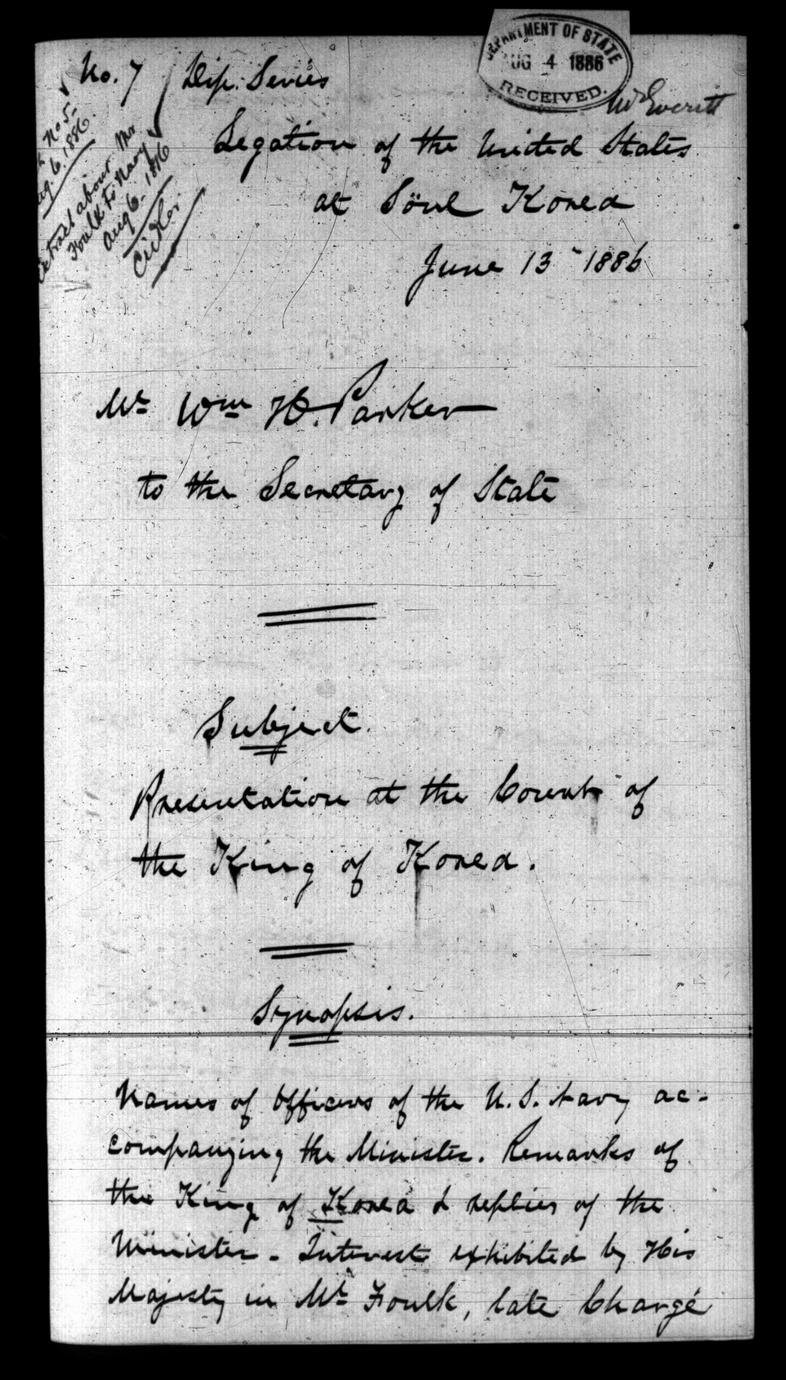 No. 7 Dip. Series
DEPARTMENT OF STATE
AUG 4 1886
RECEIVED.
Mr Everett
No 5-
Aug. 6. 1886.
Extract about Mr
Foulk to Navy
Aug 6. 1886
Legation of the United States
at Söul Korea
June 13" 1886
Mr. Wm H. Parker
to the Secretary of State
Subject.
Presentation at the Court of
the King of Korea.
Synopsis.
Names of Officers of the U.S. Navy ac-
companying the Minister. Remarks of
the King of Korea & replies of the
Minister - Interest exhibited by His
Majesty in Mr. Foulk, late Chargé